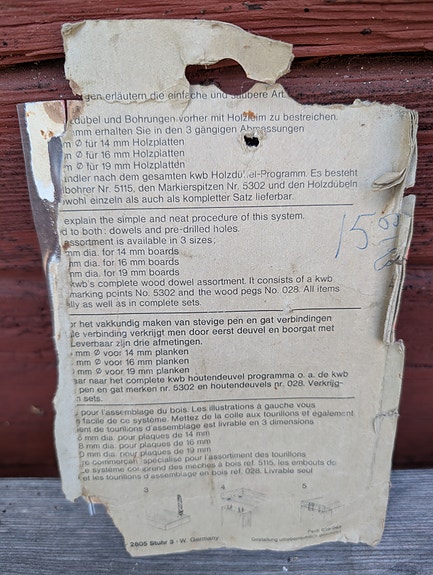 gen erläutern die einfache und saubere Art.
dübel und Bohrungen vorher mit Holzleim zu bestreichen.
mm erhalten Sie in den 3 gängigen Abmessungen
m Ø für 14 mm Holzplatten
m Ø für 16 mm Holzplatten
m Ø für 19 mm Holzplatten
ndler nach dem gesamten kwb Holzdübel-Programm. Es besteht
bohrer Nr. 5115, den Markierspitzen Nr. 5302 und den Holzdübeln
wohl einzeln als auch als kompletter Satz lieferbar.
explain the simple and neat procedure of this system.
d to both: dowels and pre-drilled holes.
assortment is available in 3 sizes:
mm dia. for 14 mm boards
mm dia. for 16 mm boards
mm dia. for 19 mm boards
kwb's complete wood dowel assortment. It consists of a kwb
marking points No. 5302 and the wood pegs No. 028. All items
lly as well as in complete sets.
or het vakkundig maken van stevige pen en gat verbindingen
le verbinding verkrijgt men door eerst deuvel en boorgat met
Leverbaar zijn drie afmetingen.
mm Ø voor 14 mm planken
mm Ø voor 16 mm planken
mm Ø voor 19 mm planken
aar naar het complete kwb houtendeuvel programma o. a. de kwb
pen en gat merken nr. 5302 en houtendeuvels nr. 028. Verkrijg-
n sets.
pour l'assemblage du bois. Les illustrations à gauche vous
facile de ce système. Mettez de la colle aux tourillons et également
ent de tourillons d'assemblage est livrable en 3 dimensions
mm dia. pour plaques de 14 mm
8 mm dia. pour plaques de 16 mm
0 mm dia. pour plaques de 19 mm
re commerçant spécialisé pour l'assortiment des tourillons
Le système comprend des mèches à bois ref. 5115, les embouts de
et les tourillons d'assemblage en bois ref. 028. Livrable seul
3 4 5
2805 Stuhr 3 · W. Germany
15